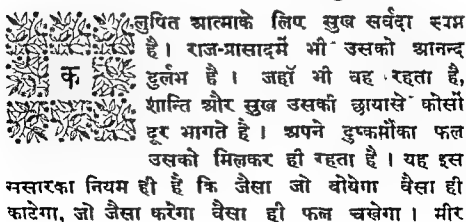 कलुषित आत्माके लिए सुख सर्वदा स्वप्न
है। राज-प्रासादमें भी उसको आनन्द
दुर्लभ है। जहाँ भी वह रहता है,
शान्ति और सुख उसकी छायासे कोसों
दूर भागते है। अपने दुष्कर्मोका फल
उसको मिलकर ही रहता है। यह इस
ससारका नियम ही है कि जैसा जो बोयेगा वैसा ही
काटेगा, जो जैसा करेगा वैसा ही फल चखेगा। मीर